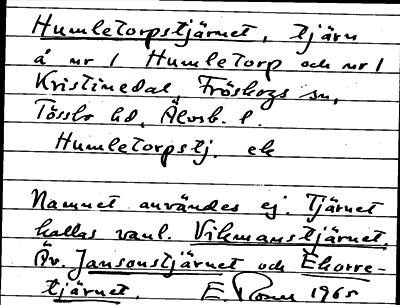 Humletorpstjärnet, tjärn
å nr 1 Humletorp och nr 1
Kristinedal, Fröskogs sn,
Tössbo hd, Älvsb. l.
Humletorpstj. ek
Namnet användes ej. Tjärnet
kallas vanl. Vikmanstjärnet.
Äv. Jansonstjärnet och Ekorre-
tjärnet.
E. 1965